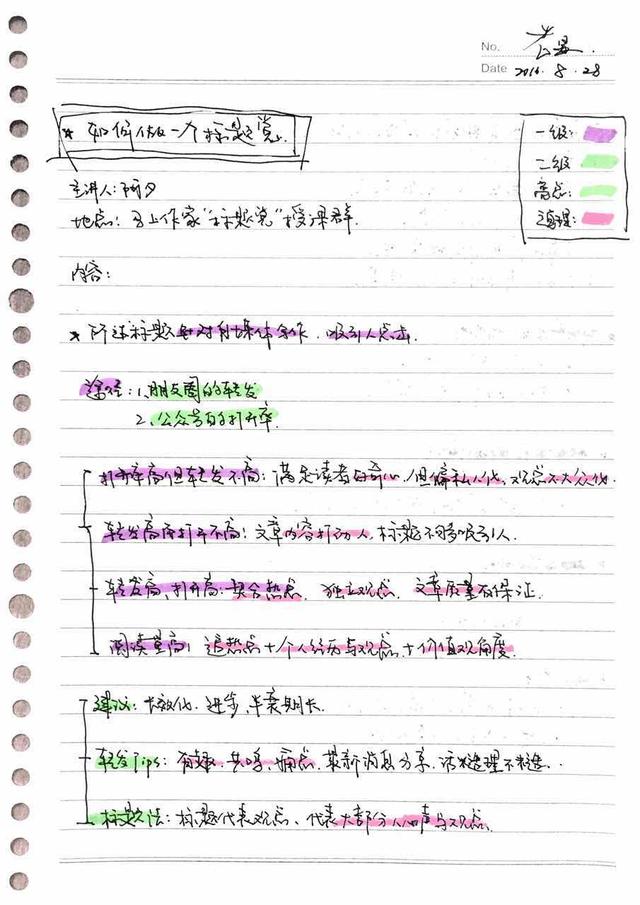 No.
Date 2016.8.28
* 如何做一个标题党
一级:
二级
高点:
道理:
主讲人: 阿夕
地点: 马上作家"标题党"授课群.
内容:
* 所谓标题 针对自媒体写作, 吸引人点击
途径: 1、朋友圈的转发
2、公众号的打开率.
打开率高但转发不高: 满足读者好奇心, 但偏私人化, 观点不大众化
转发高而打开不高: 文章内容打动人, 标题不够吸引人.
转发高、打开高: 契合热点, 独立观点, 文章质量有保证.
阅读量高: 追热点+个人经历与观点+价值观角度
建议: 长效化、进步、半衰期长.
转发Tips: 有趣、共鸣、痛点、最新消息分享、
标题法: 标题代表观点、代表大部分人心声与观点.